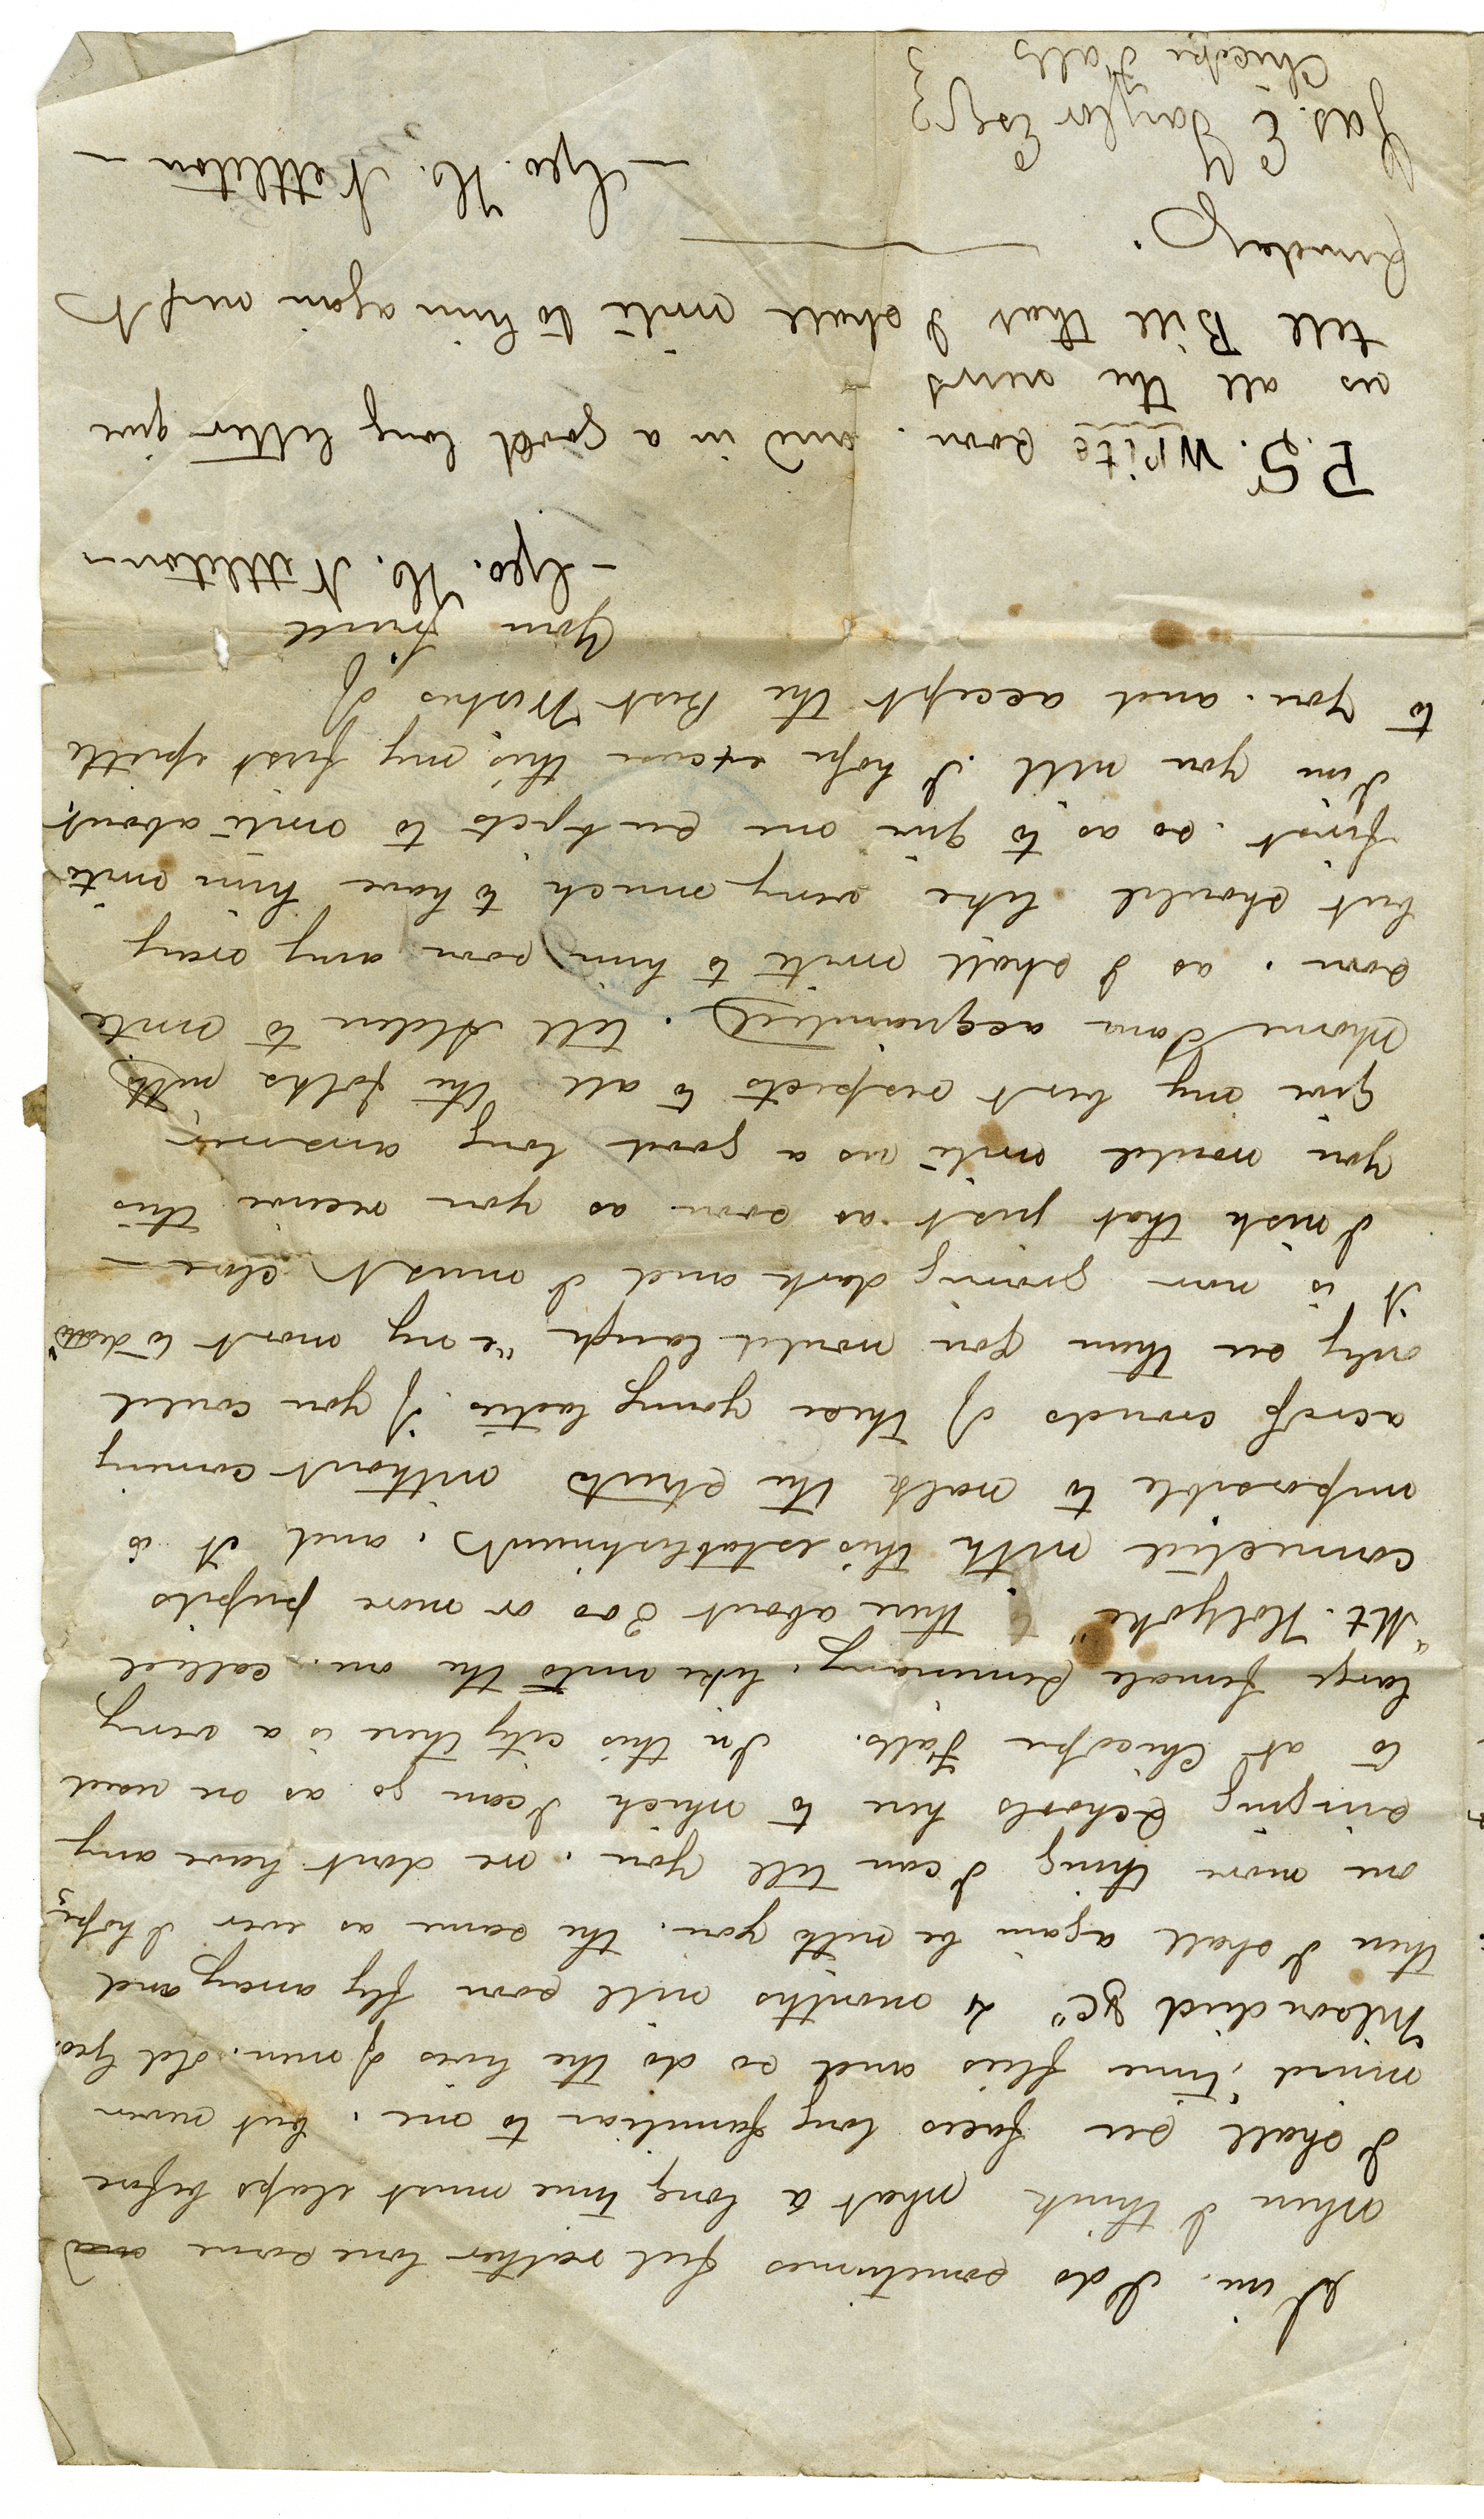 Jim. I do sometimes feel rather lonesome and
when I think what a long time must elaps before
I shall see faces long familiar to me, but never
mind, "time flies and so do the lives of men. old Geo.
Wilson died &c" 4 months will soon fly away and
then I shall again be with you. the same as ever I hope,
one more thing I can tell you, we dont have any
singing Schools here to which I can go as we used
to at Chicopee Falls. In this city there is a very
large female Seminary, like unto the one called
"Mt. Holyoke" there about 300 or more pupils
connected with this establishment, and it is
impossible to walk the streets without coming
across crowds of these young ladies. if you could
only see them you would laugh "e ny most to death"
it is now growing dark and I must close —
I wish that just as soon as you receive this
you would write us a good long answer,
Give my best respects to all the folks with
whome I am acquainted. tell Alden to write
soon, as I shall write to him soon any way
but should like very much to have him write
first. so as to give me subjects to write about,
Jim you will I hope excuse this, my first epistle
to you. and accept the Best Wishes of
Your friend
— Geo. H. Nettleton —
P.S. Write soon. and in a good long letter give
us all the news
tell Bill that I shall write to him again next
Sunday.
— Geo. H. Nettleton —
Jas. E Taylor Esq
Chicopee Falls